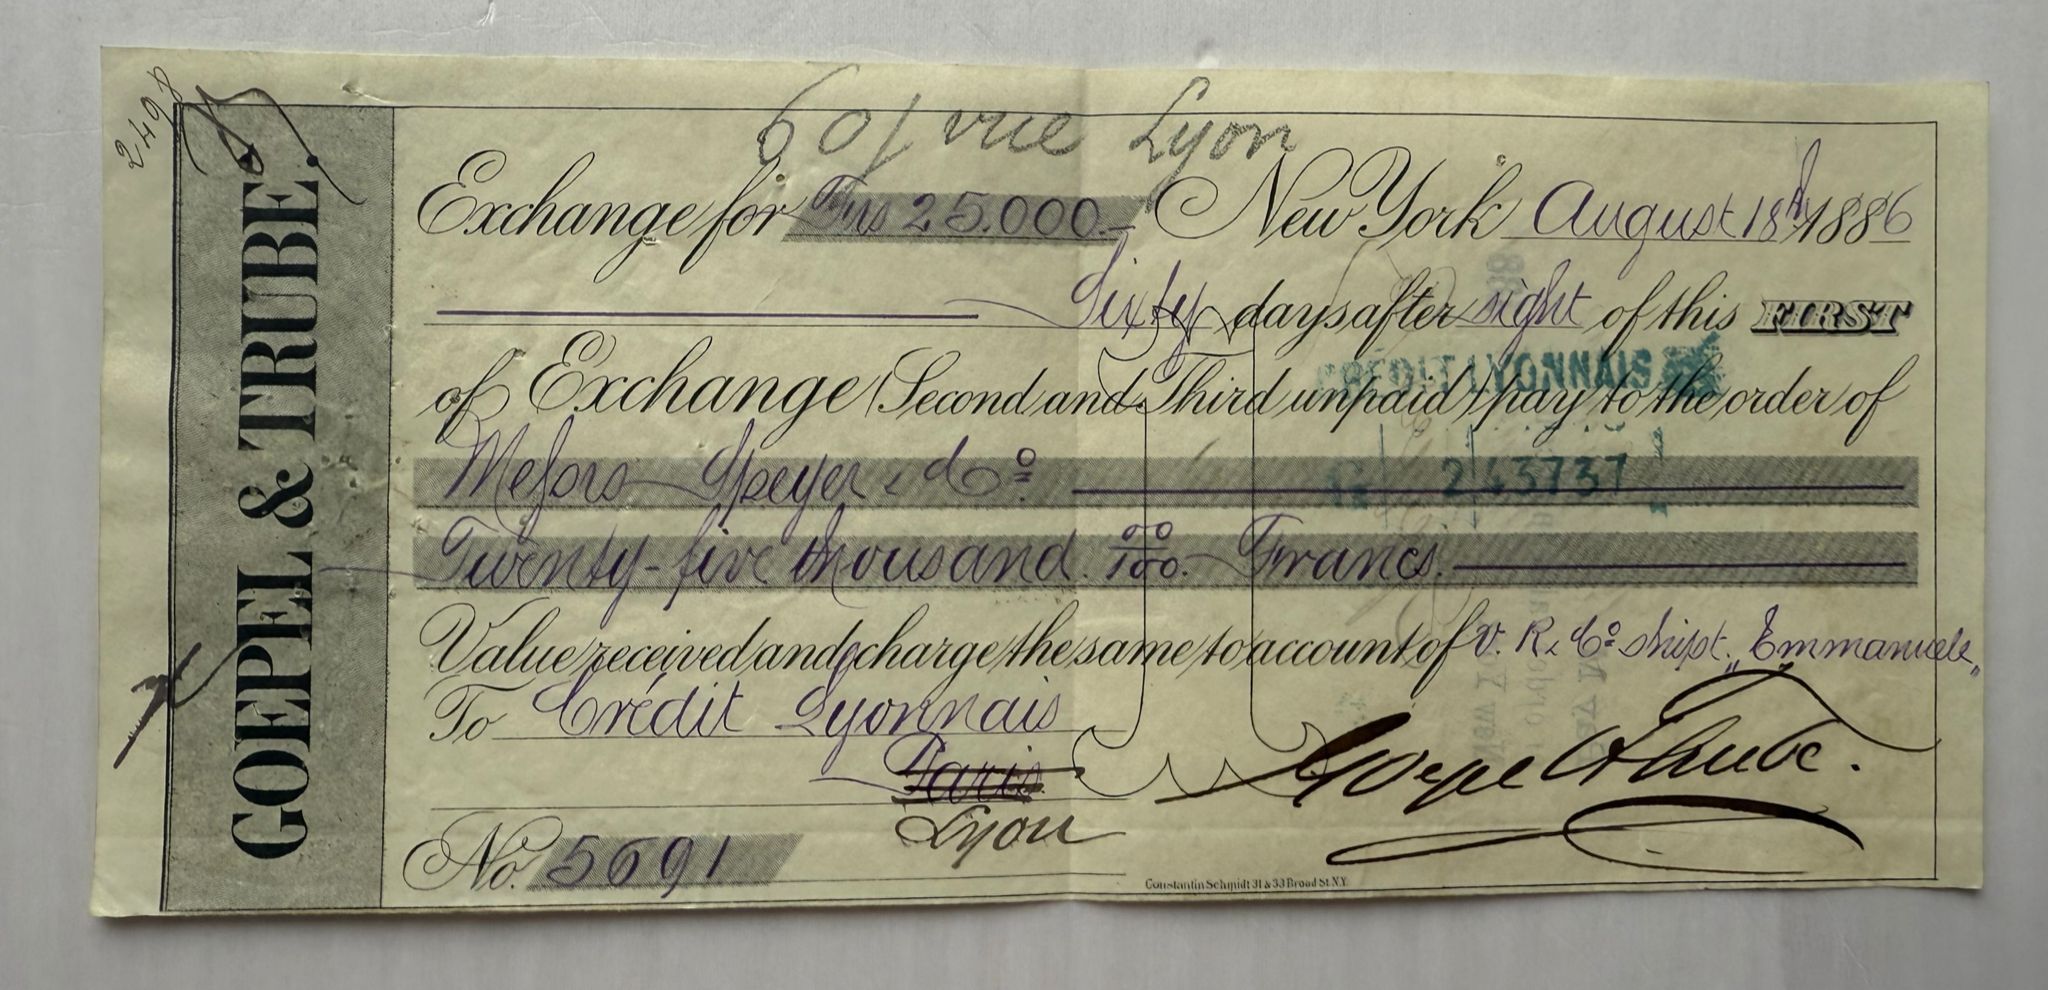 2498
GOEPEL & TRUBE.
60/vue Lyon
Exchange for Frs 25.000.— New York August 18th 1886
Sixty days after sight of this FIRST
of Exchange (Second and Third unpaid) pay to the order of
CRÉDIT LYONNAIS
Messrs Speyer & Co
243737
Twenty-five thousand 00/100 Francs.
Value received and charge the same to account of V. R. & Co shipt. „Emmanuele„
To Crédit Lyonnais
Paris
Lyon
Goepel & Trube.
No. 5691
Constantin Schmidt 31 & 33 Broad St. N.Y.